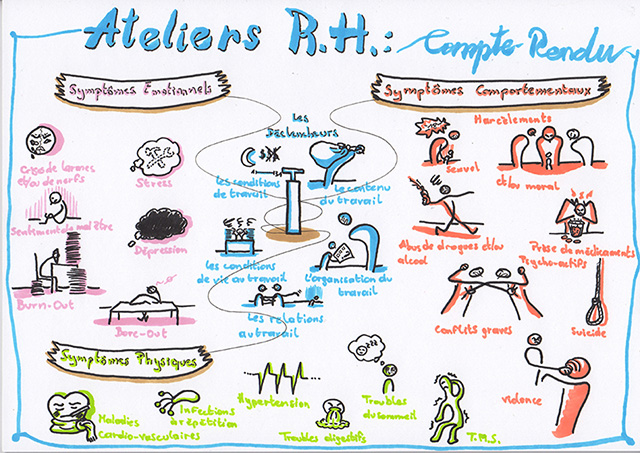 Ateliers R.H.: Compte Rendu
Symptômes Emotionnels
Symptômes Comportementaux
Les
Déclencheurs
Harcèlements
Sexuel
et/ou moral
Crise de larmes
et/ou de nerfs
Stress
Les conditions
de travail
Le contenu
du travail
Sentimental mal être
Dépression
Abus de drogues et/ou
alcool
Prise de médicaments
Psycho-actifs
Les conditions
de vie au travail
L'organisation du
travail
Burn-Out
Bore-Out
Les relations
au travail
Conflits graves
Suicide
Symptômes Physiques
Violence
Maladies
Cardio-vasculaires
Infections
à répétition
Hypertension
Troubles digestifs
Troubles
du sommeil
zzz
T.M.S.